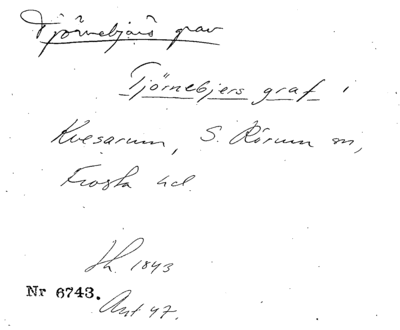 Tjörnebjärs grav
Tjörnebjers graf i
Kvesarum, S. Rörum sn,
Frosta hd.
1843
Nr 6743.
Ant 47.